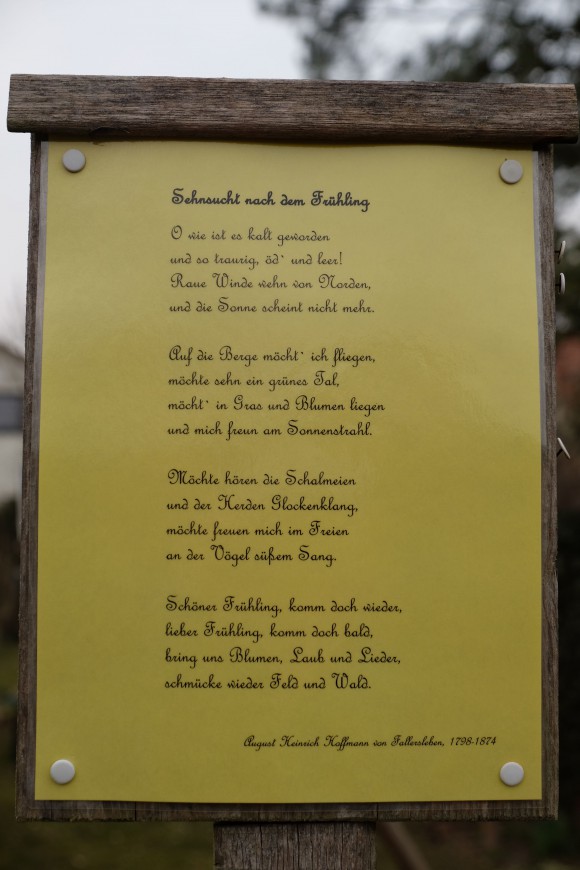 Sehnsucht nach dem Frühling
O wie ist es kalt geworden
und so traurig, öd` und leer!
Raue Winde wehn von Norden,
und die Sonne scheint nicht mehr.
Auf die Berge möcht` ich fliegen,
möchte sehn ein grünes Tal,
möcht` in Gras und Blumen liegen
und mich freun am Sonnenstrahl.
Möchte hören die Schalmeien
und der Herden Glockenklang,
möchte freuen mich im Freien
an der Vögel süßem Sang.
Schöner Frühling, komm doch wieder,
lieber Frühling, komm doch bald,
bring uns Blumen, Laub und Lieder,
schmücke wieder Feld und Wald.
August Heinrich Hoffmann von Fallersleben, 1798-1874